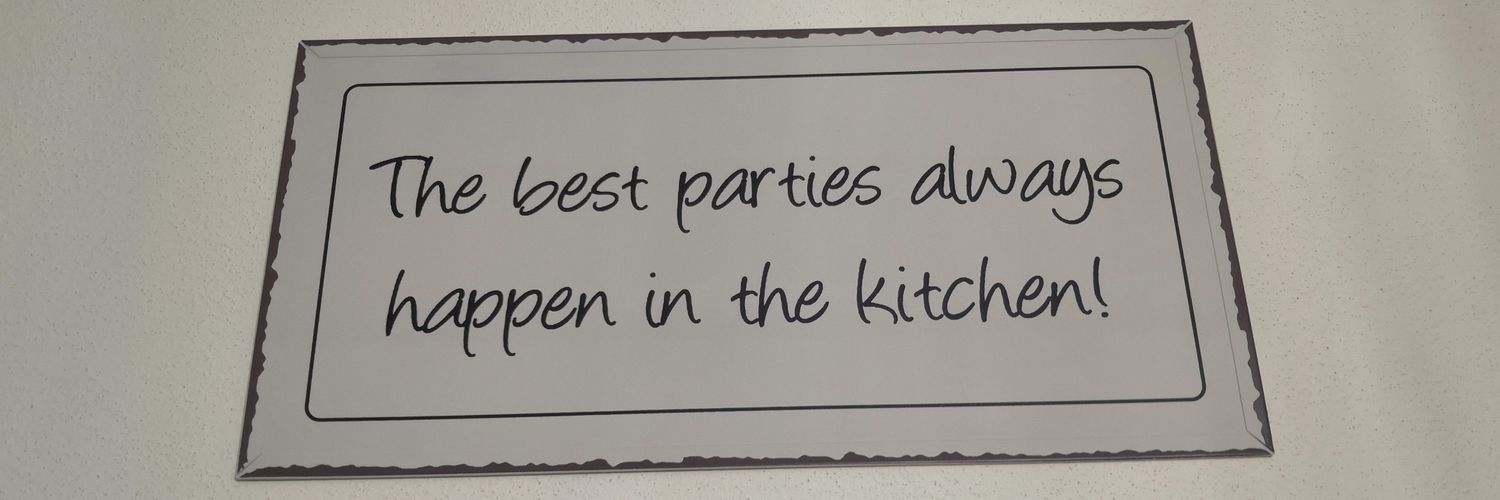 The best parties always
happen in the kitchen!